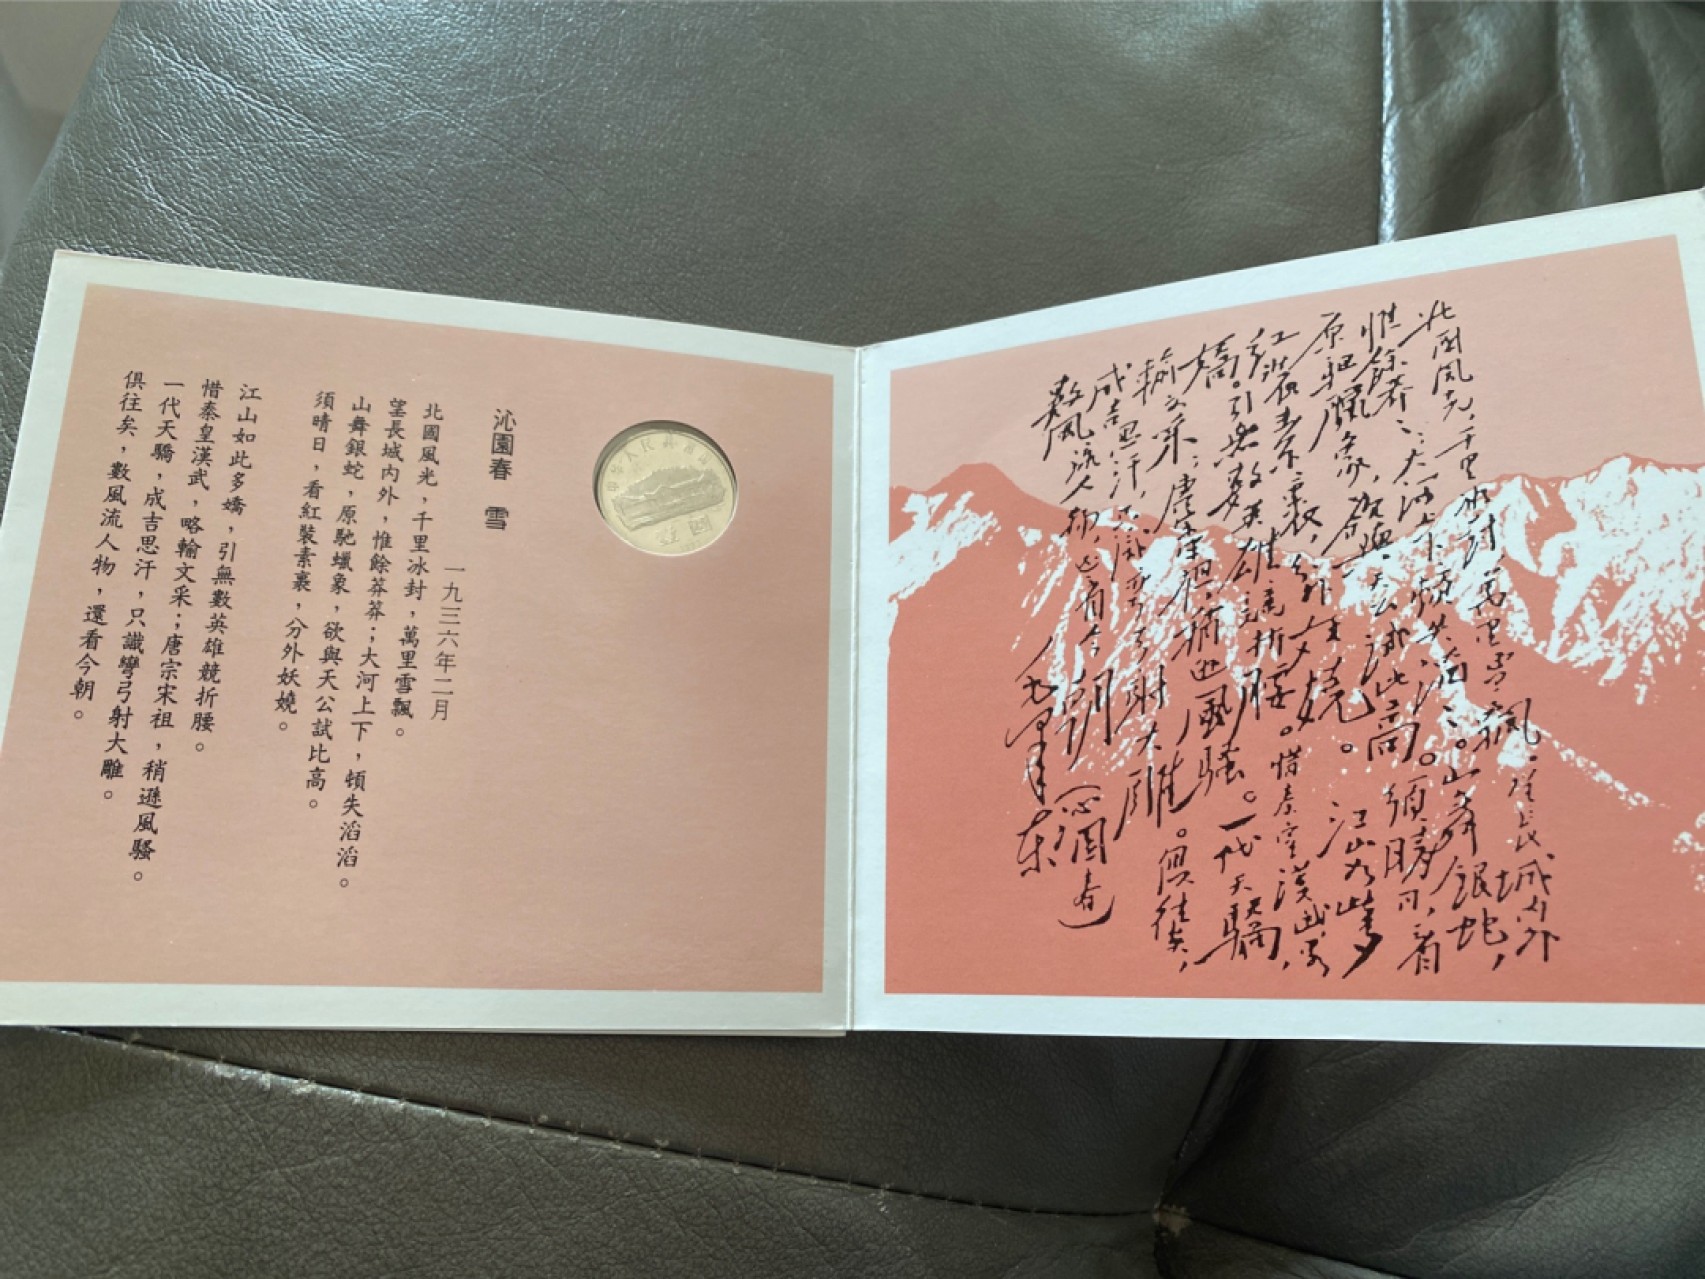 北国风光，千里冰封，萬里雪飘。望长城内外
惟馀莽々；大河上下，顿失滔々。山舞银蛇，
原驱腊象，欲与天公试比高。须晴日，看
红装素裹，分外妖娆。江山如此多
娇。引无数英雄竞折腰。惜秦皇汉武，略
输文采；唐宗宋祖，稍逊风骚。一代天骄，
成吉思汗，只识弯弓射大雕。俱往矣，
数风流人物，还看今朝（沁园春）
毛泽东
中华人民共和国
沁園春　雪
一九三六年二月
北國風光，千里冰封，萬里雪飄。
望長城內外，惟餘莽莽；大河上下，頓失滔滔。
山舞銀蛇，原馳蠟象，欲與天公試比高。
須晴日，看紅裝素裹，分外妖嬈。
江山如此多嬌，引無數英雄競折腰。
惜秦皇漢武，略輸文采；唐宗宋祖，稍遜風騷。
一代天驕，成吉思汗，只識彎弓射大雕。
俱往矣，數風流人物，還看今朝。